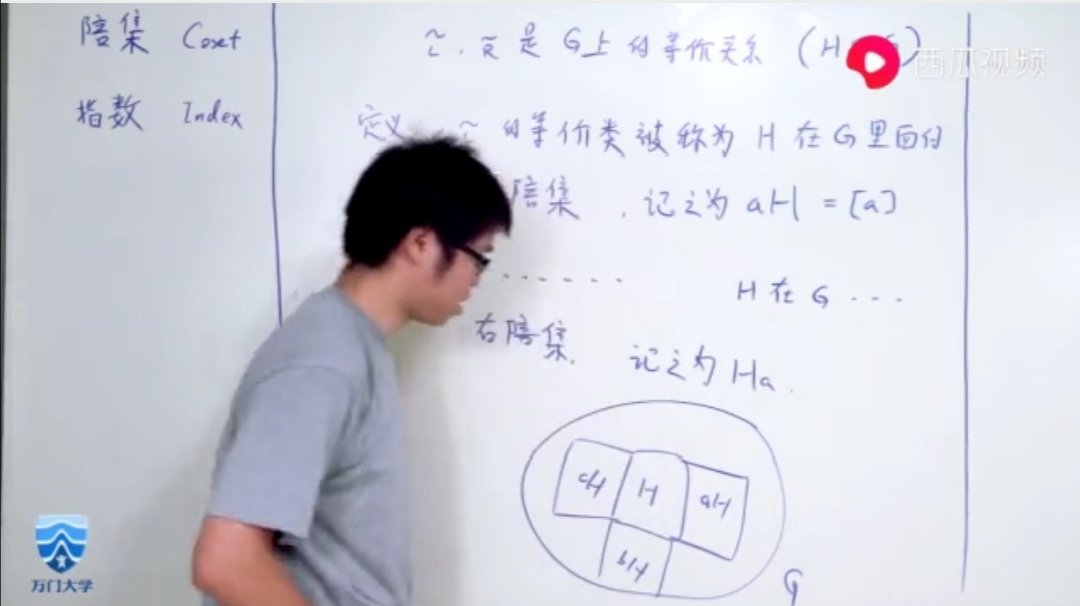 陪集 Coset
指数 Index
~L . ~R 是 G上的等价关系 (H
西瓜视频
定义 ~L 的等价类被称为 H 在 G 里面的
陪集 . 记之为 aH = [a]
. . . . . . H 在 G ...
右陪集. 记之为 Ha.
cH H aH
bH
G
万门大学